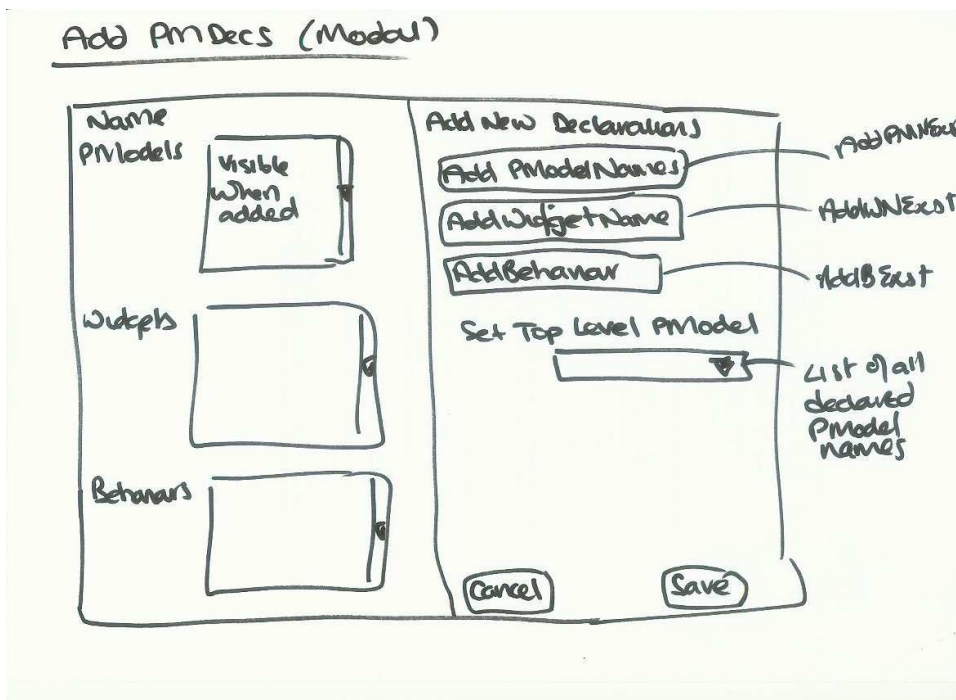 Add PMDecs (Modal)
Name
PModels
Visible
When
added
Widgets
Behaviours
Add New Declarations
Add PModelNames
AddWidgetName
AddBehaviour
Set Top Level PModel
Cancel
Save
AddWNExist
AddBExist
List of all
declared
PModel
names